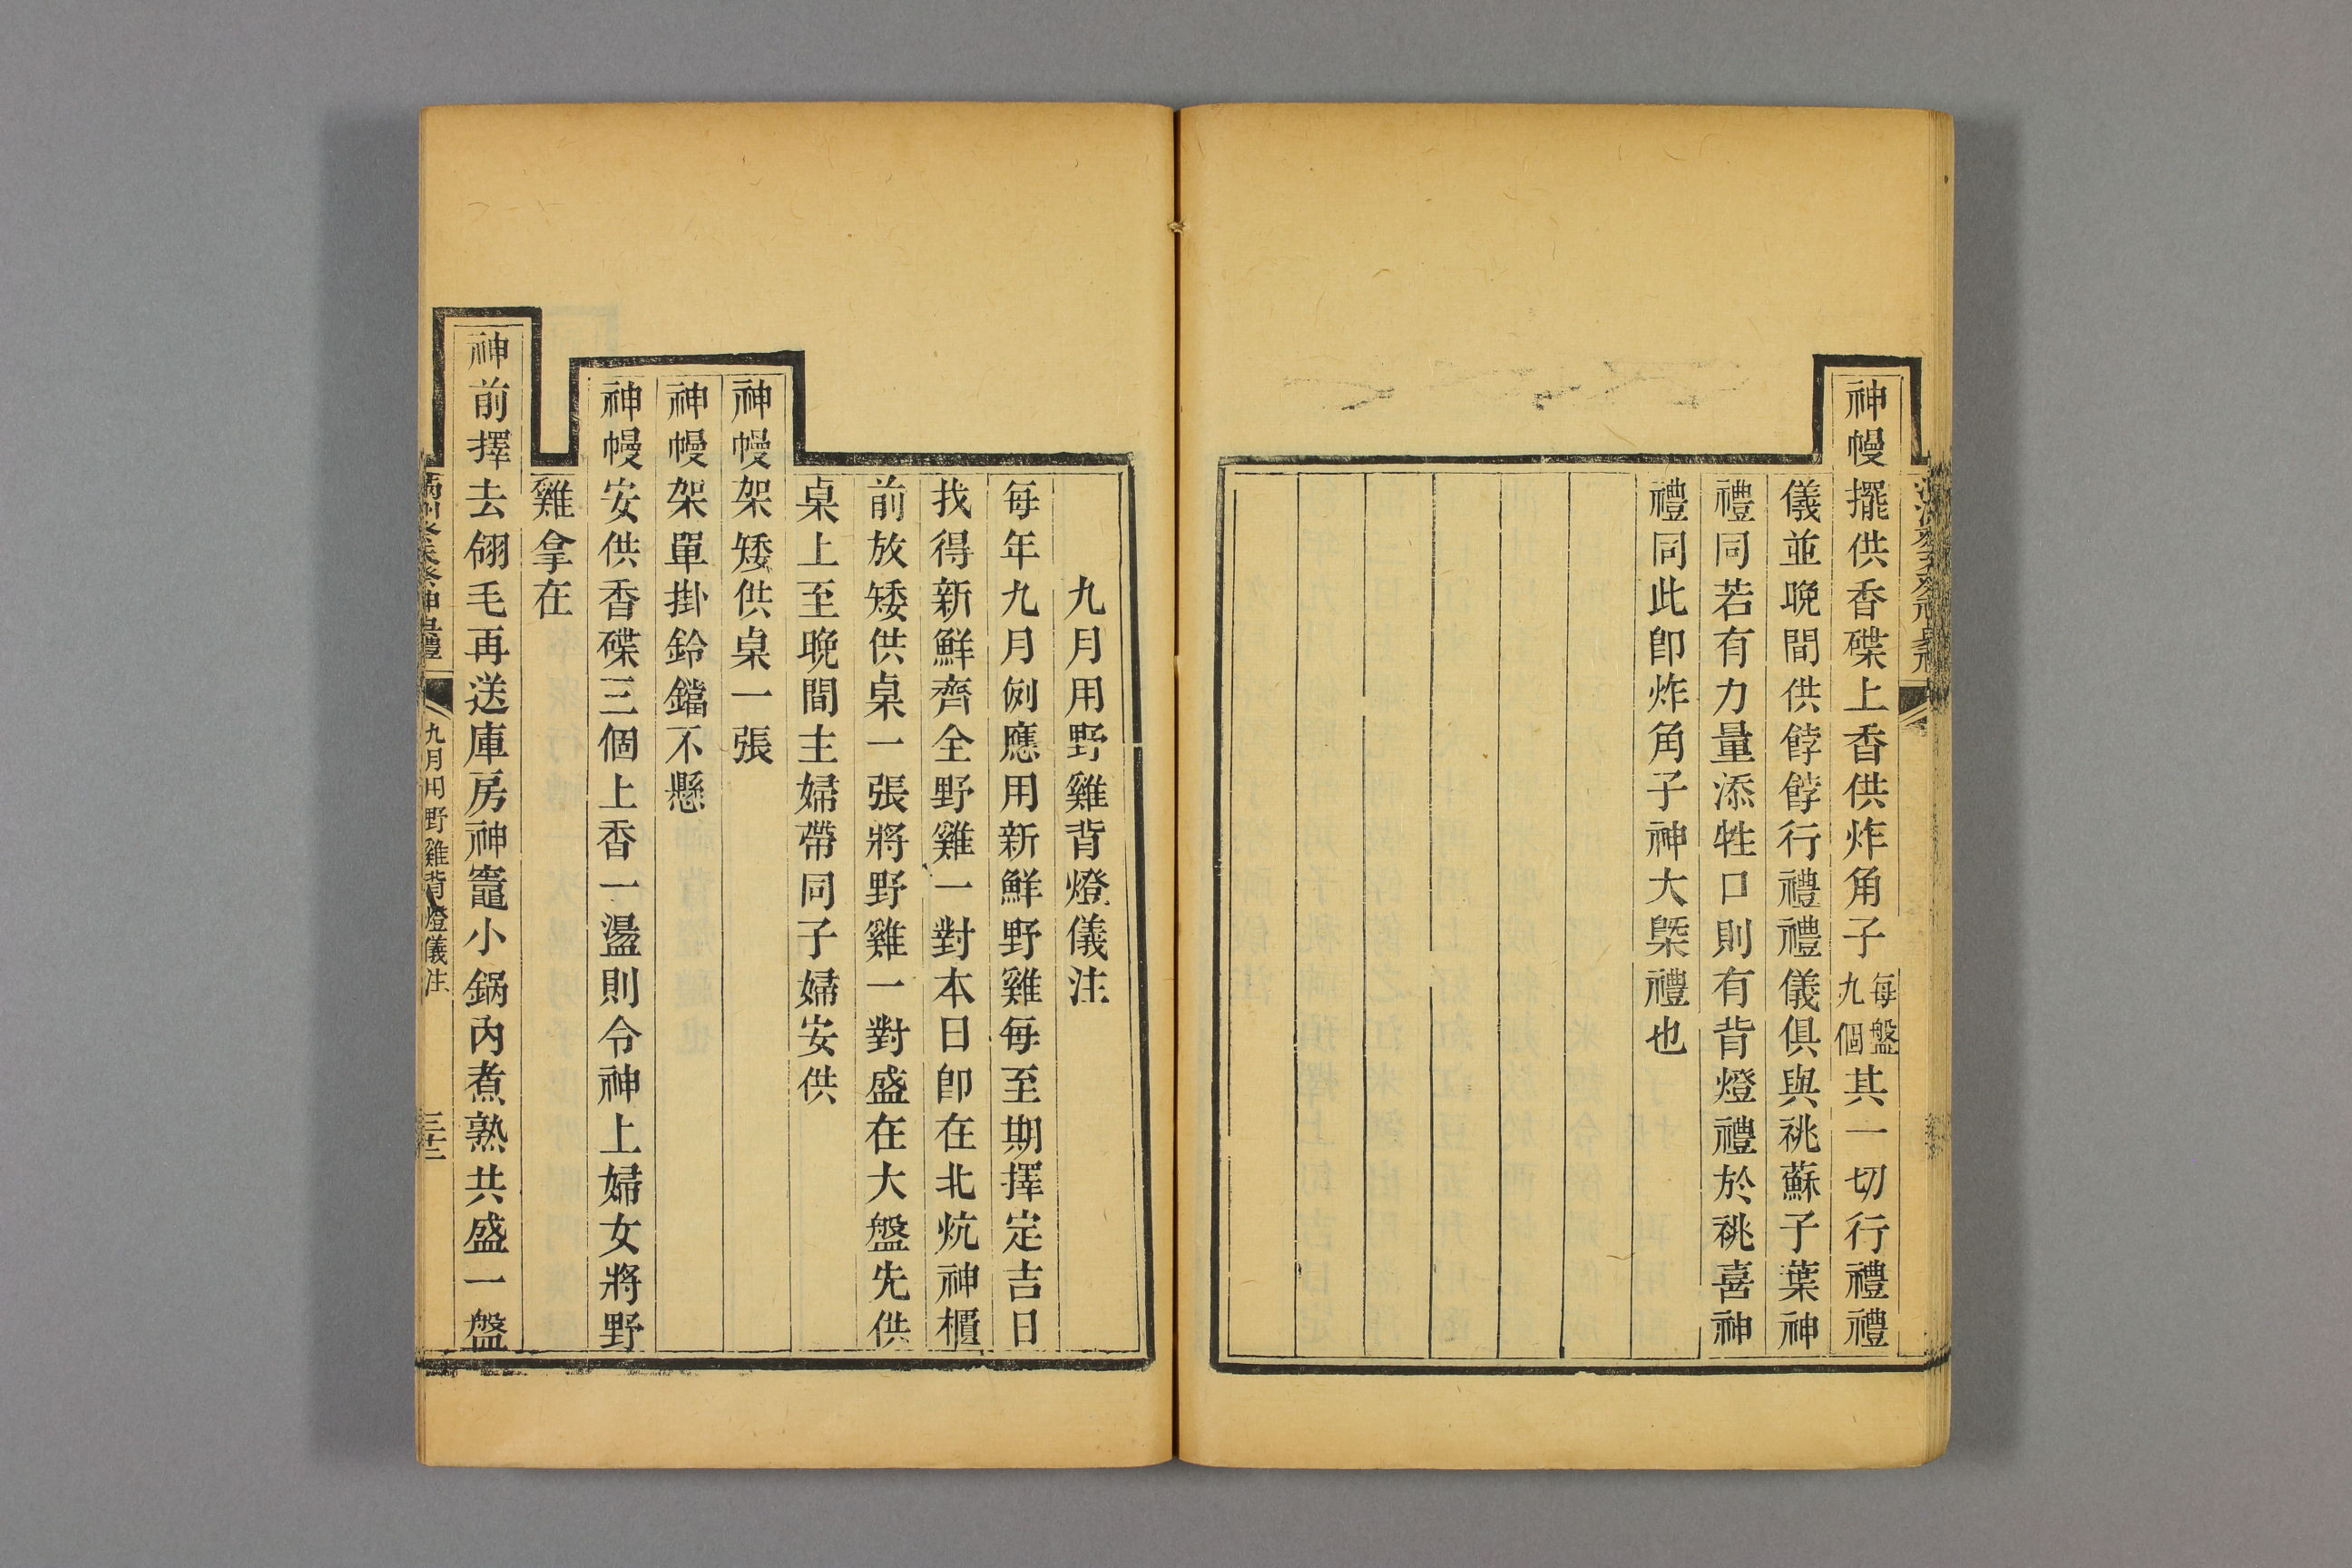 神幔擺供香碟上香供炸角子每盤九個其一切行禮禮
儀並晚間供餑餑行禮禮儀俱與祧蘇子葉神
禮同若有力量添牲口則有背燈禮於祧喜神
禮同此卽炸角子神大槩禮也
九月用野雞背燈儀注
每年九月例應用新鮮野雞每至期擇定吉日
找得新鮮齊全野雞一對本日卽在北炕神櫃
前放矮供桌一張將野雞一對盛在大盤先供
桌上至晚間主婦帶同子婦安供
神幔架矮供桌一張
神幔架單掛鈴鐺不懸
神幔安供香碟三個上香一盪則令神上婦女將野
雞拿在
神前擇去翎毛再送庫房神竈小鍋內煮熟共盛一盤
九月用野雞背燈儀注